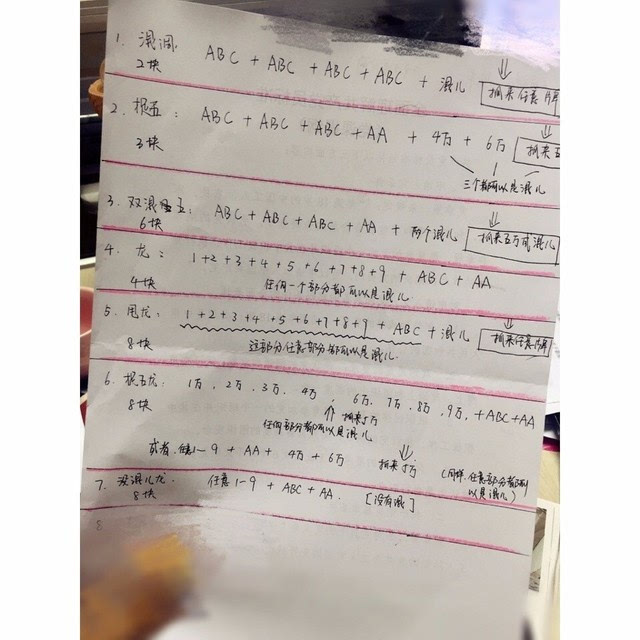 1. 混调.
ABC + ABC + ABC + ABC + 混儿 ⇓ 捆来任意牌
2块
2. 捉五: ABC + ABC + ABC + AA + 4万 + 6万 ⇓ 捆来五
3块
三个都可以是混儿
3. 双混五: ABC + ABC + ABC + AA + 两个混儿 ⇓ 捆来五万或混儿
6块
4. 龙: 1+2+3+4+5+6+7+8+9 + ABC + AA
4块 任何一个部分都可以是混儿
5. 甩龙: 1+2+3+4+5+6+7+8+9 + ABC + 混儿 ⇓ 捆来任意牌
8块 这部分任意部分都可以是混儿
6. 捉五龙: 1万, 2万, 3万, 4万, 6万, 7万, 8万, 9万, +ABC+AA
8块 ⇑ 捆来5万
任何部分都可以是混儿
或者 任1-9 + AA + 4万 + 6万 ⇓ 捆来5万 (同样, 任意部分都可以是混儿)
7. 没混儿龙. 任意1-9 + ABC + AA. [没有混]
8块
8